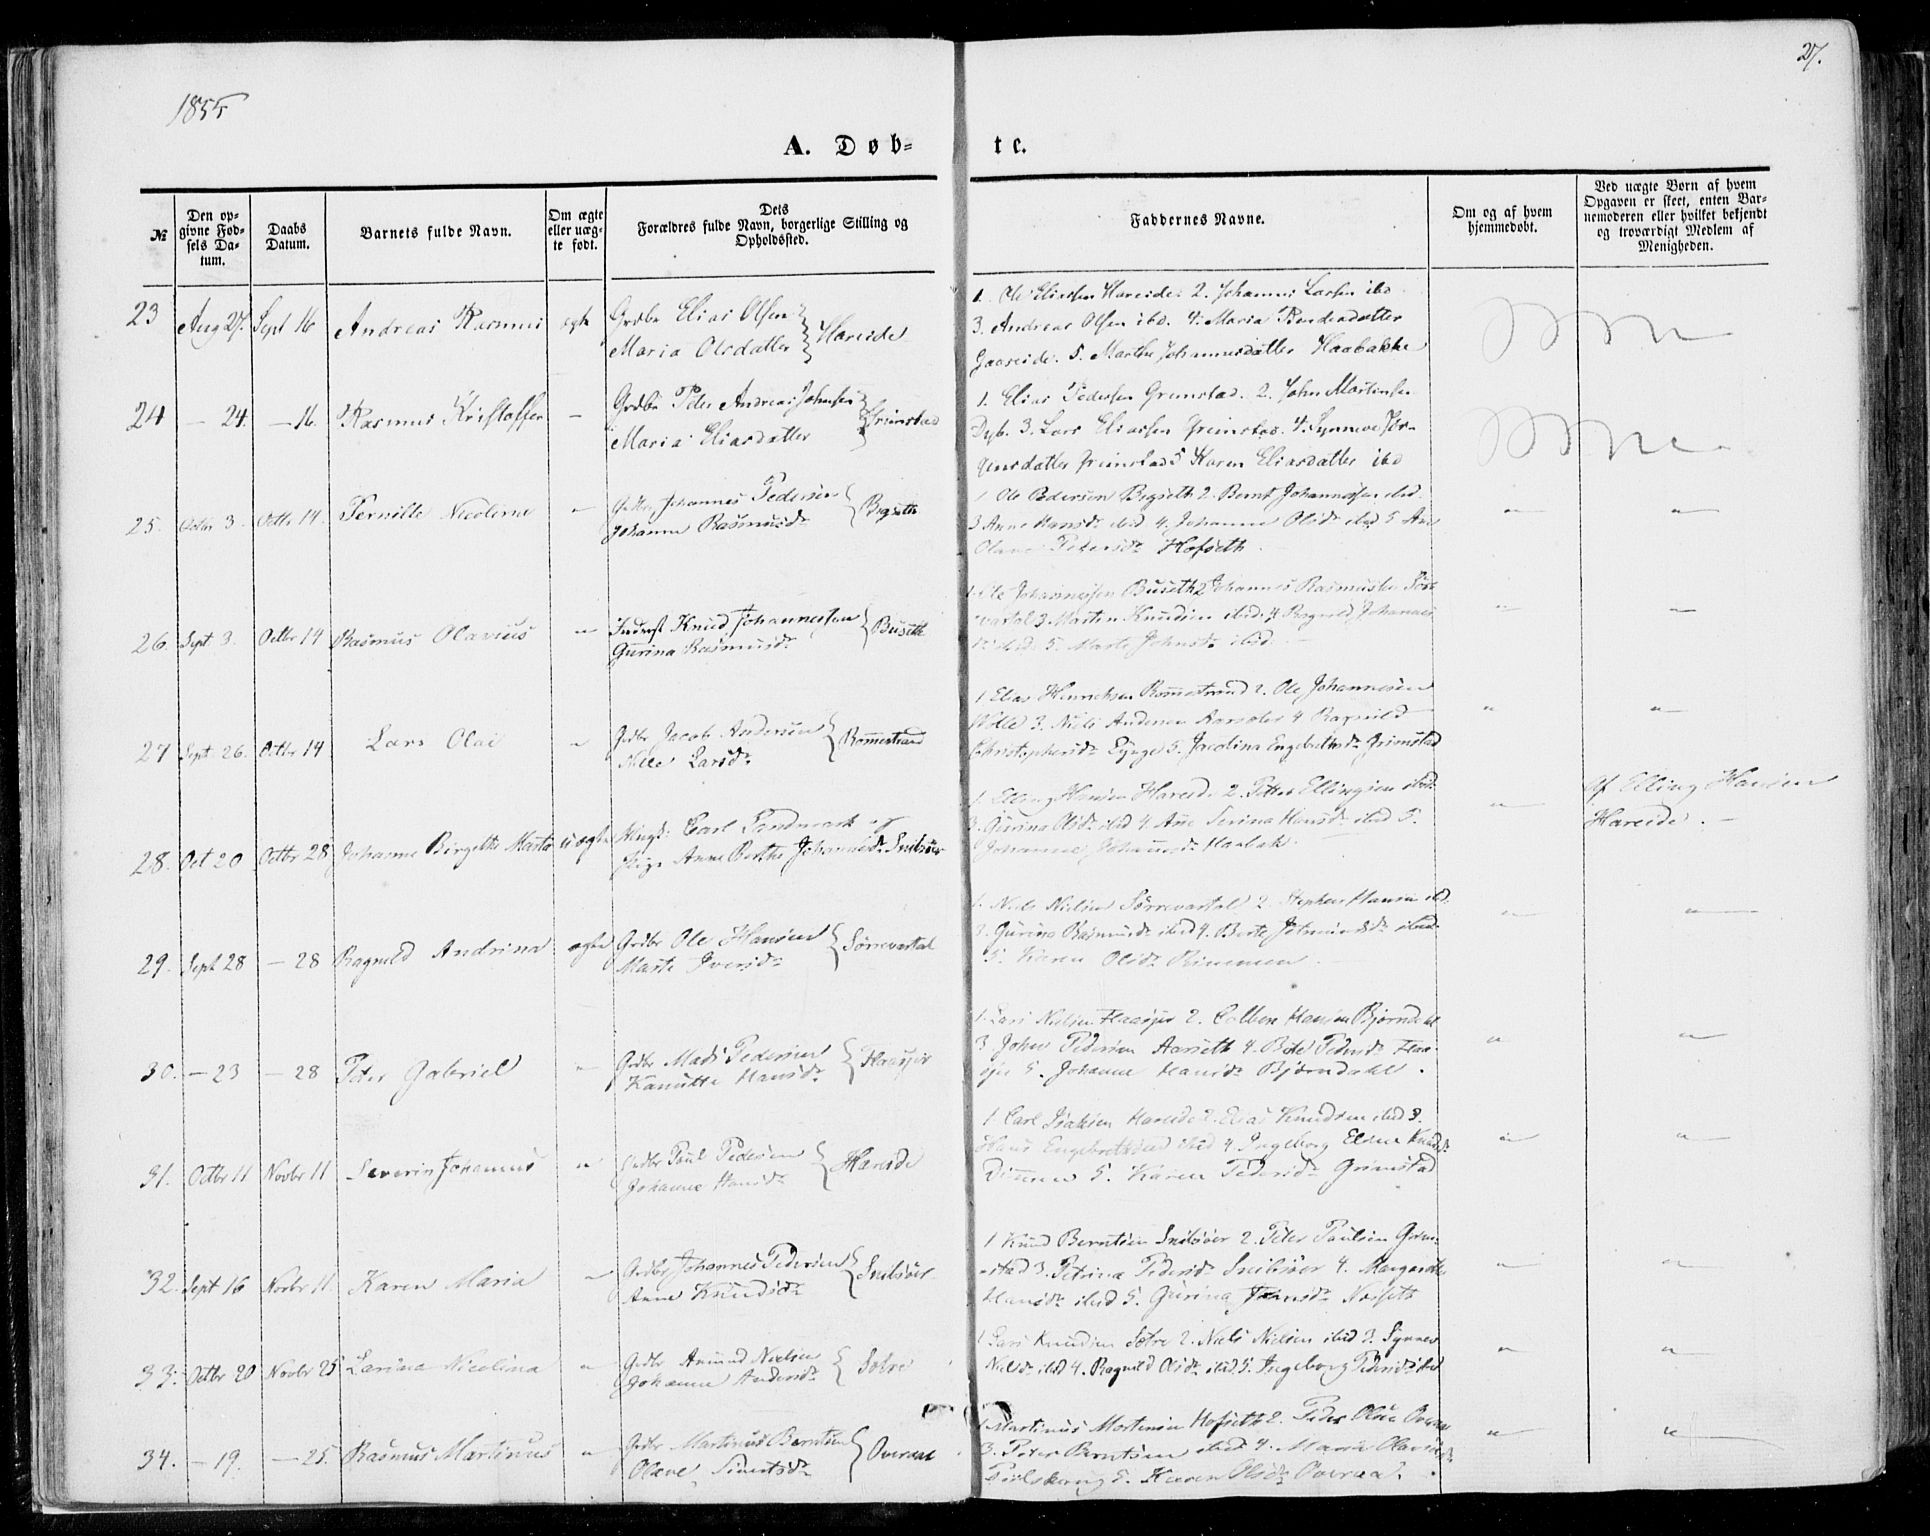 27.
1855
A. Døb-
te.
№
Den op-
givne Fød-
sels Da-
tum.
Daabs
Datum.
Barnets fulde Navn.
Om ægte
eller uæg-
te født.
Dets
Forældres fulde Navn, borgerlige Stilling og
Opholdssted.
Faddernes Navne.
Om og af hvem
hjemmedøbt.
Ved uægte Børn af hvem
Opgaven er skeet, enten Bar-
nemoderen eller hvilket bekjendt
og troværdigt Medlem af
Menigheden.
23 Aug 27. Sept 16 Andreas Rasmus ægte Grdbr Elias Olsen
Maria Olsdatter } Hareide
1. Ole Eliassen Hareide. 2. Johannes Larsen ibd
3. Andreas Olsen ibd. 4. Maria
5. Marthe Johannesdatter Haabakke
24 — 24. — 16. Rasmus Kristoffer — Grdbr Peder Andreas Johnsen
Maria Eliasdatter } Grimstad
1. Elias Pedersen Grimstad. 2. John Martinsen
Dyb. 3. Lars Eliassen Grimstad. 4. Synneve Jør-
gensdatter Grimstad 5 Karen Eliasdatter ibd
25. Octbr 3. Octbr 14. Pernille Nicoline " Grdbr Johannes Pedersen
Johanne Rasmusdr } Bigseth
1 Ole Pedersen Bigseth 2. Bernt Johannesen ibid.
3 Anne Hansdr ibid 4. Johanne Olsdr ibid 5 Ane
Olave Pedersdr Hofseth
26. Sept. 3. Octbr 14 Rasmus Olavius " Inderst Knud Johannessen
Gurina Rasmusdr } Buseth
1. Ole Johannessen Buseth 2 Johannes Rasmussen Sørre
vartal 3. Morten Knudsen ibid. 4 Ragnild Johannes
dr ibid. 5. Marte Johnsdr ibid.
27 Sept. 26. Octbr 14 Lars Olai " Grdbr Jacob Andersen
Nille Larsdr } Rømmestrand
1 Elias Henrichsen Rømmestrand 2. Ole Johannesen
3. Niels Andersen 4 Ragnild
Christophersdr 5. Jacolina Engebrethsdr Grimstad
28. Oct 20 Octbr 28 Johanne Birgethe Marta uægte Ungk: Carl Landmark og
Pige Anne Berthe Johannesdr Snibsøer
1. Elling Hansen Hareide 2. Petter Ellingsen ibid.
3. Gurina Olsdr ibid 4. Ane Serina Hansdr ibid 5.
Johanne Johannesdr Haabak.
Af Elling Hansen
Hareide. —
29. Sept 28 — 28 Ragnild Andrina ægte Grdbr Ole Hansen
Marte Iversdr } Sørrevartal
1. Niels Nielsen Sørrevartal 2. Stephen Hansen ibd.
3. Gurina Rasmusdr ibid 4. Berte ibid
5. Karen Olsdr
30. — 23 — 28 Peter Gabriel " Grdbr Mads Pedersen
Kanutte Hansdr } Flaasjer
1. Lars Nielsen Flaasjer 2. Colben Hansen Bjørndahl
3 John Pedersen Aarseth 4. Pedersdr Flaa-
sjer 5. Johanne Hansdr Bjørndahl.
31. Octbr 11 Novbr 11 Severin Johannes " Grdbr Paul Pedersen
Johanne Hansdr } Hareide
1 Carl Isaksen Hareide 2. Elias Knudsen ibid 3.
Hans Engebrethsen ibid 4 Ingeborg Eline Knudsdr
5. Karen Pedersdr Grimstad
32. Sept 16 Novbr 11. Karen Maria " Grdbr Johannes Pedersen
Anne Knudsdr } Snibsøer
1 Knud Berntsen Snibsøer 2. Peter Paulsen Grim-
stad 3. Petrina Pedersdr Snibsøer 4. Margarethe
Hansdr ibid 5. Gurina
33. Octbr 20 Novbr 25 Larine Nicolina " Grdbr Amund Nielsen
Johanne Andersdr } Sætre
1 Lars Knudsen Sætre 2. Niels Nielsen ibid 3. Synnev
Nielsdr ibid 4. Ragnild Olsdr ibid 5. Ingeborg Pedersdr ibd
34. — 19. — 25. Rasmus Martinus " Grdbr Martinus Berntsen
Olave Sivertsdr } Overaae
1. Martinus Mortensen Hofseth 2. Peder Olsen Overaae
3. Peter Berntsen ibid 4. Maria
5. Karen Olsdr Overaa.